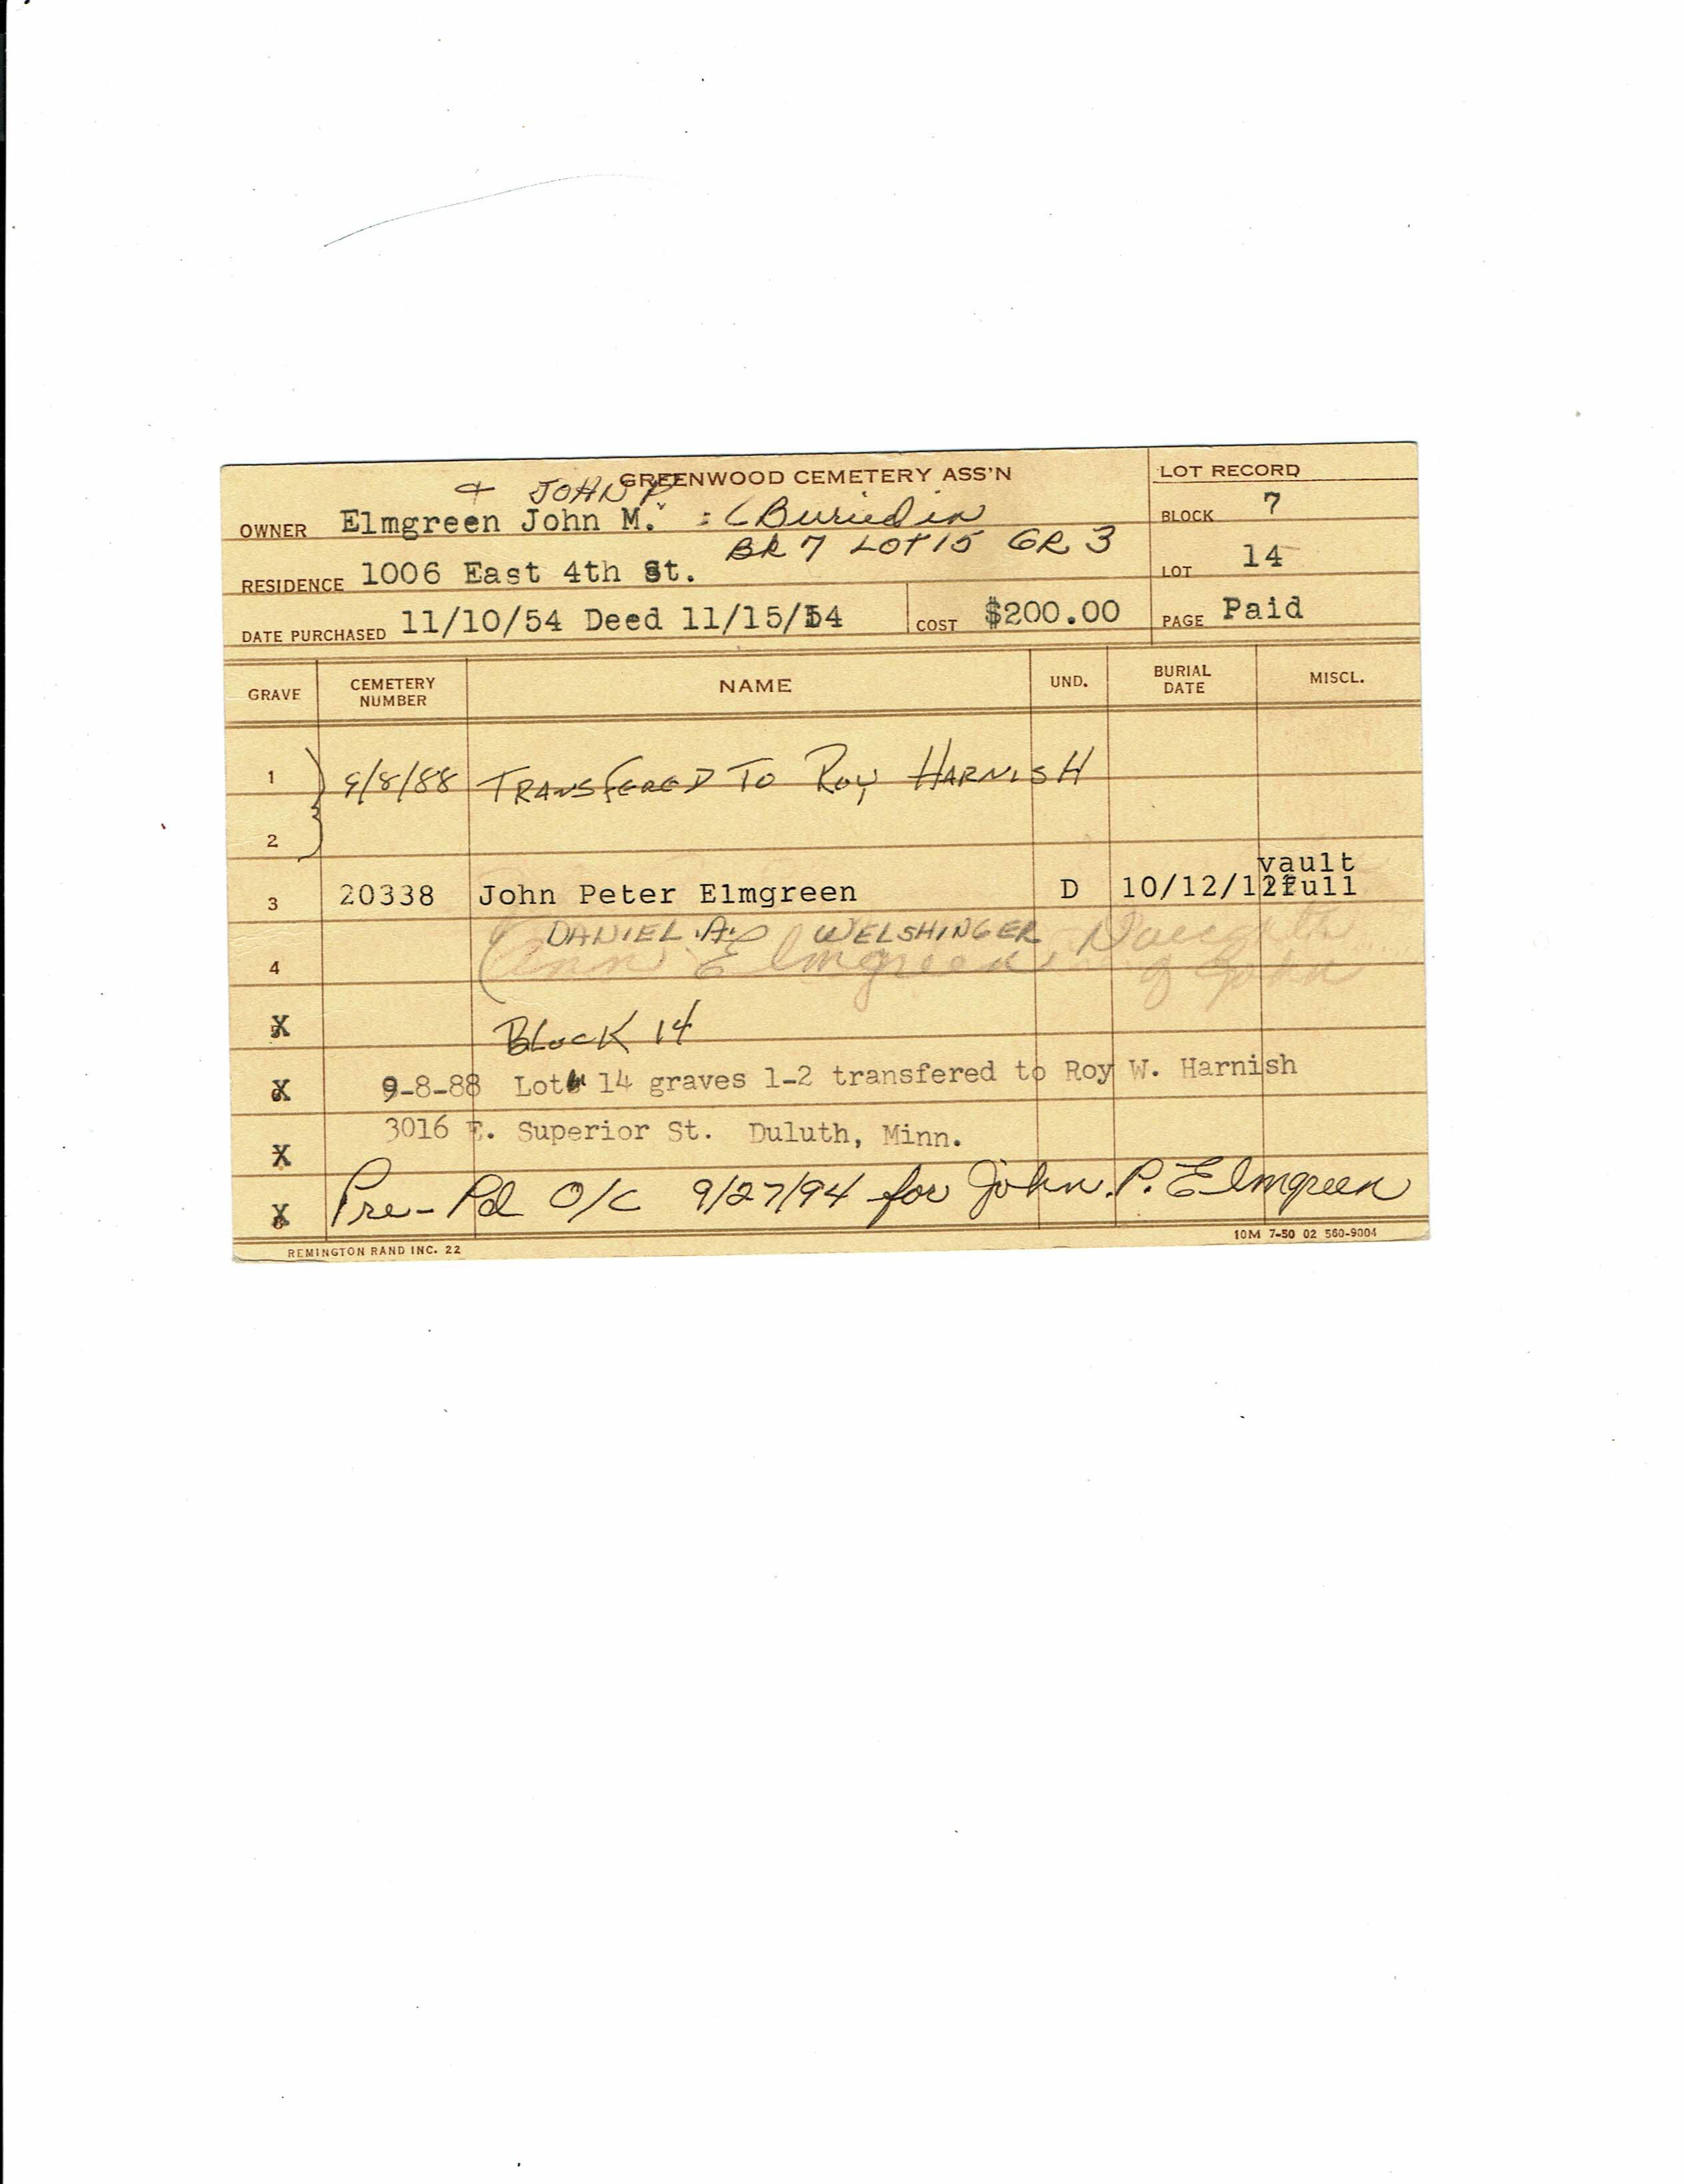 GREENWOOD CEMETERY ASS'N
LOT RECORD
+ JOHN P.
OWNER Elmgreen John M. : (Buried in
BLOCK 7
BK 7 LOT 15 GR 3
RESIDENCE 1006 East 4th St.
LOT 14
DATE PURCHASED 11/10/54 Deed 11/15/54 COST $200.00 PAGE Paid
GRAVE CEMETERY NUMBER NAME UND. BURIAL DATE MISCL.
1 9/8/88 TRANSFERED TO ROY HARNISH
2
vault
3 20338 John Peter Elmgreen D 10/12/12 full
DANIEL A. WELSHINGER
4 (Ann Elmgreen, Daughter
of John
X
Block 14
X 9-8-88 Lot 14 graves 1-2 transfered to Roy W. Harnish
X 3016 E. Superior St. Duluth, Minn.
X Pre-Pd O/C 9/27/94 for John. P. Elmgreen
REMINGTON RAND INC. 22
10M 7-50 02 560-9004